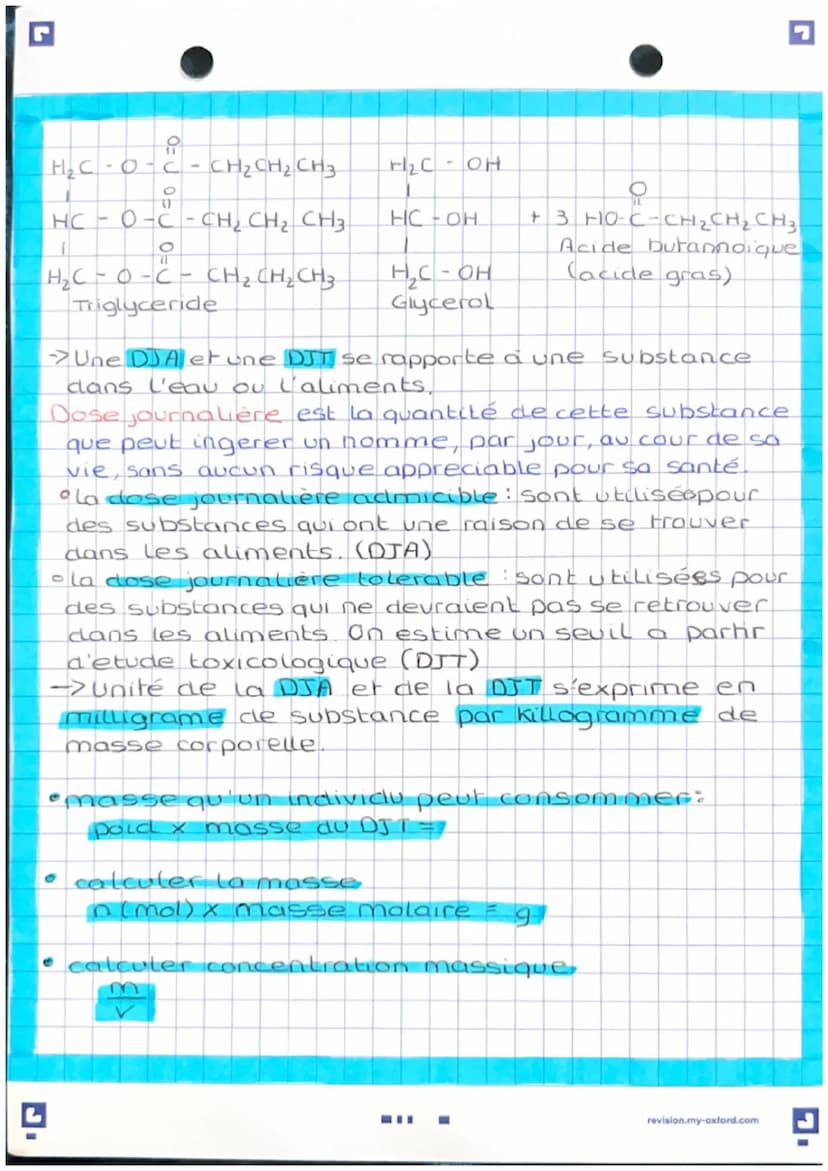 O
H₂C - O - C - CH₂CH₂CH₃ H₂C - OH
O O
HC - O - C - CH₂ CH₂ CH₃ HC - OH + 3 HO-C-CH₂CH₂CH₃
O Acide butannoique
H₂C - O - C - CH₂CH₂CH₃ H₂C - OH (acide gras)
Triglyceride Glycerol
->Une DJA et une DJT se rapporte à une substance
dans l'eau ou l'aliments.
Dose journalière est la quantité de cette substance
que peut ingerer un homme, par jour, au cour de sa
vie, sans aucun risque appreciable pour sa santé.
•la dose journalière admicible : sont utiliséepour
des substances qui ont une raison de se trouver
dans les aliments. (DJA)
•la dose journalière tolerable : sont utilisées pour
des substances qui ne devraient pas se retrouver
dans les aliments. On estime un seuil a partir
d'etude toxicologique (DJT)
-> unité de la DJA et de la DJT s'exprime en
milligrame de substance par killogramme de
masse corporelle.
•masse qu'un individu peut consommer:
poid x masse du DJT =
• calculer la masse
n(mol) x masse molaire = g
• calculer concentration massique
m
v
revision.my-oxford.com